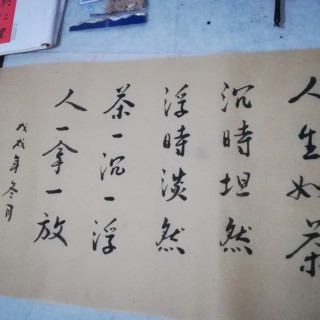 人生如茶
沉時坦然
浮時淡然
茶一沉一浮
人一拿一放
戊戌年冬月